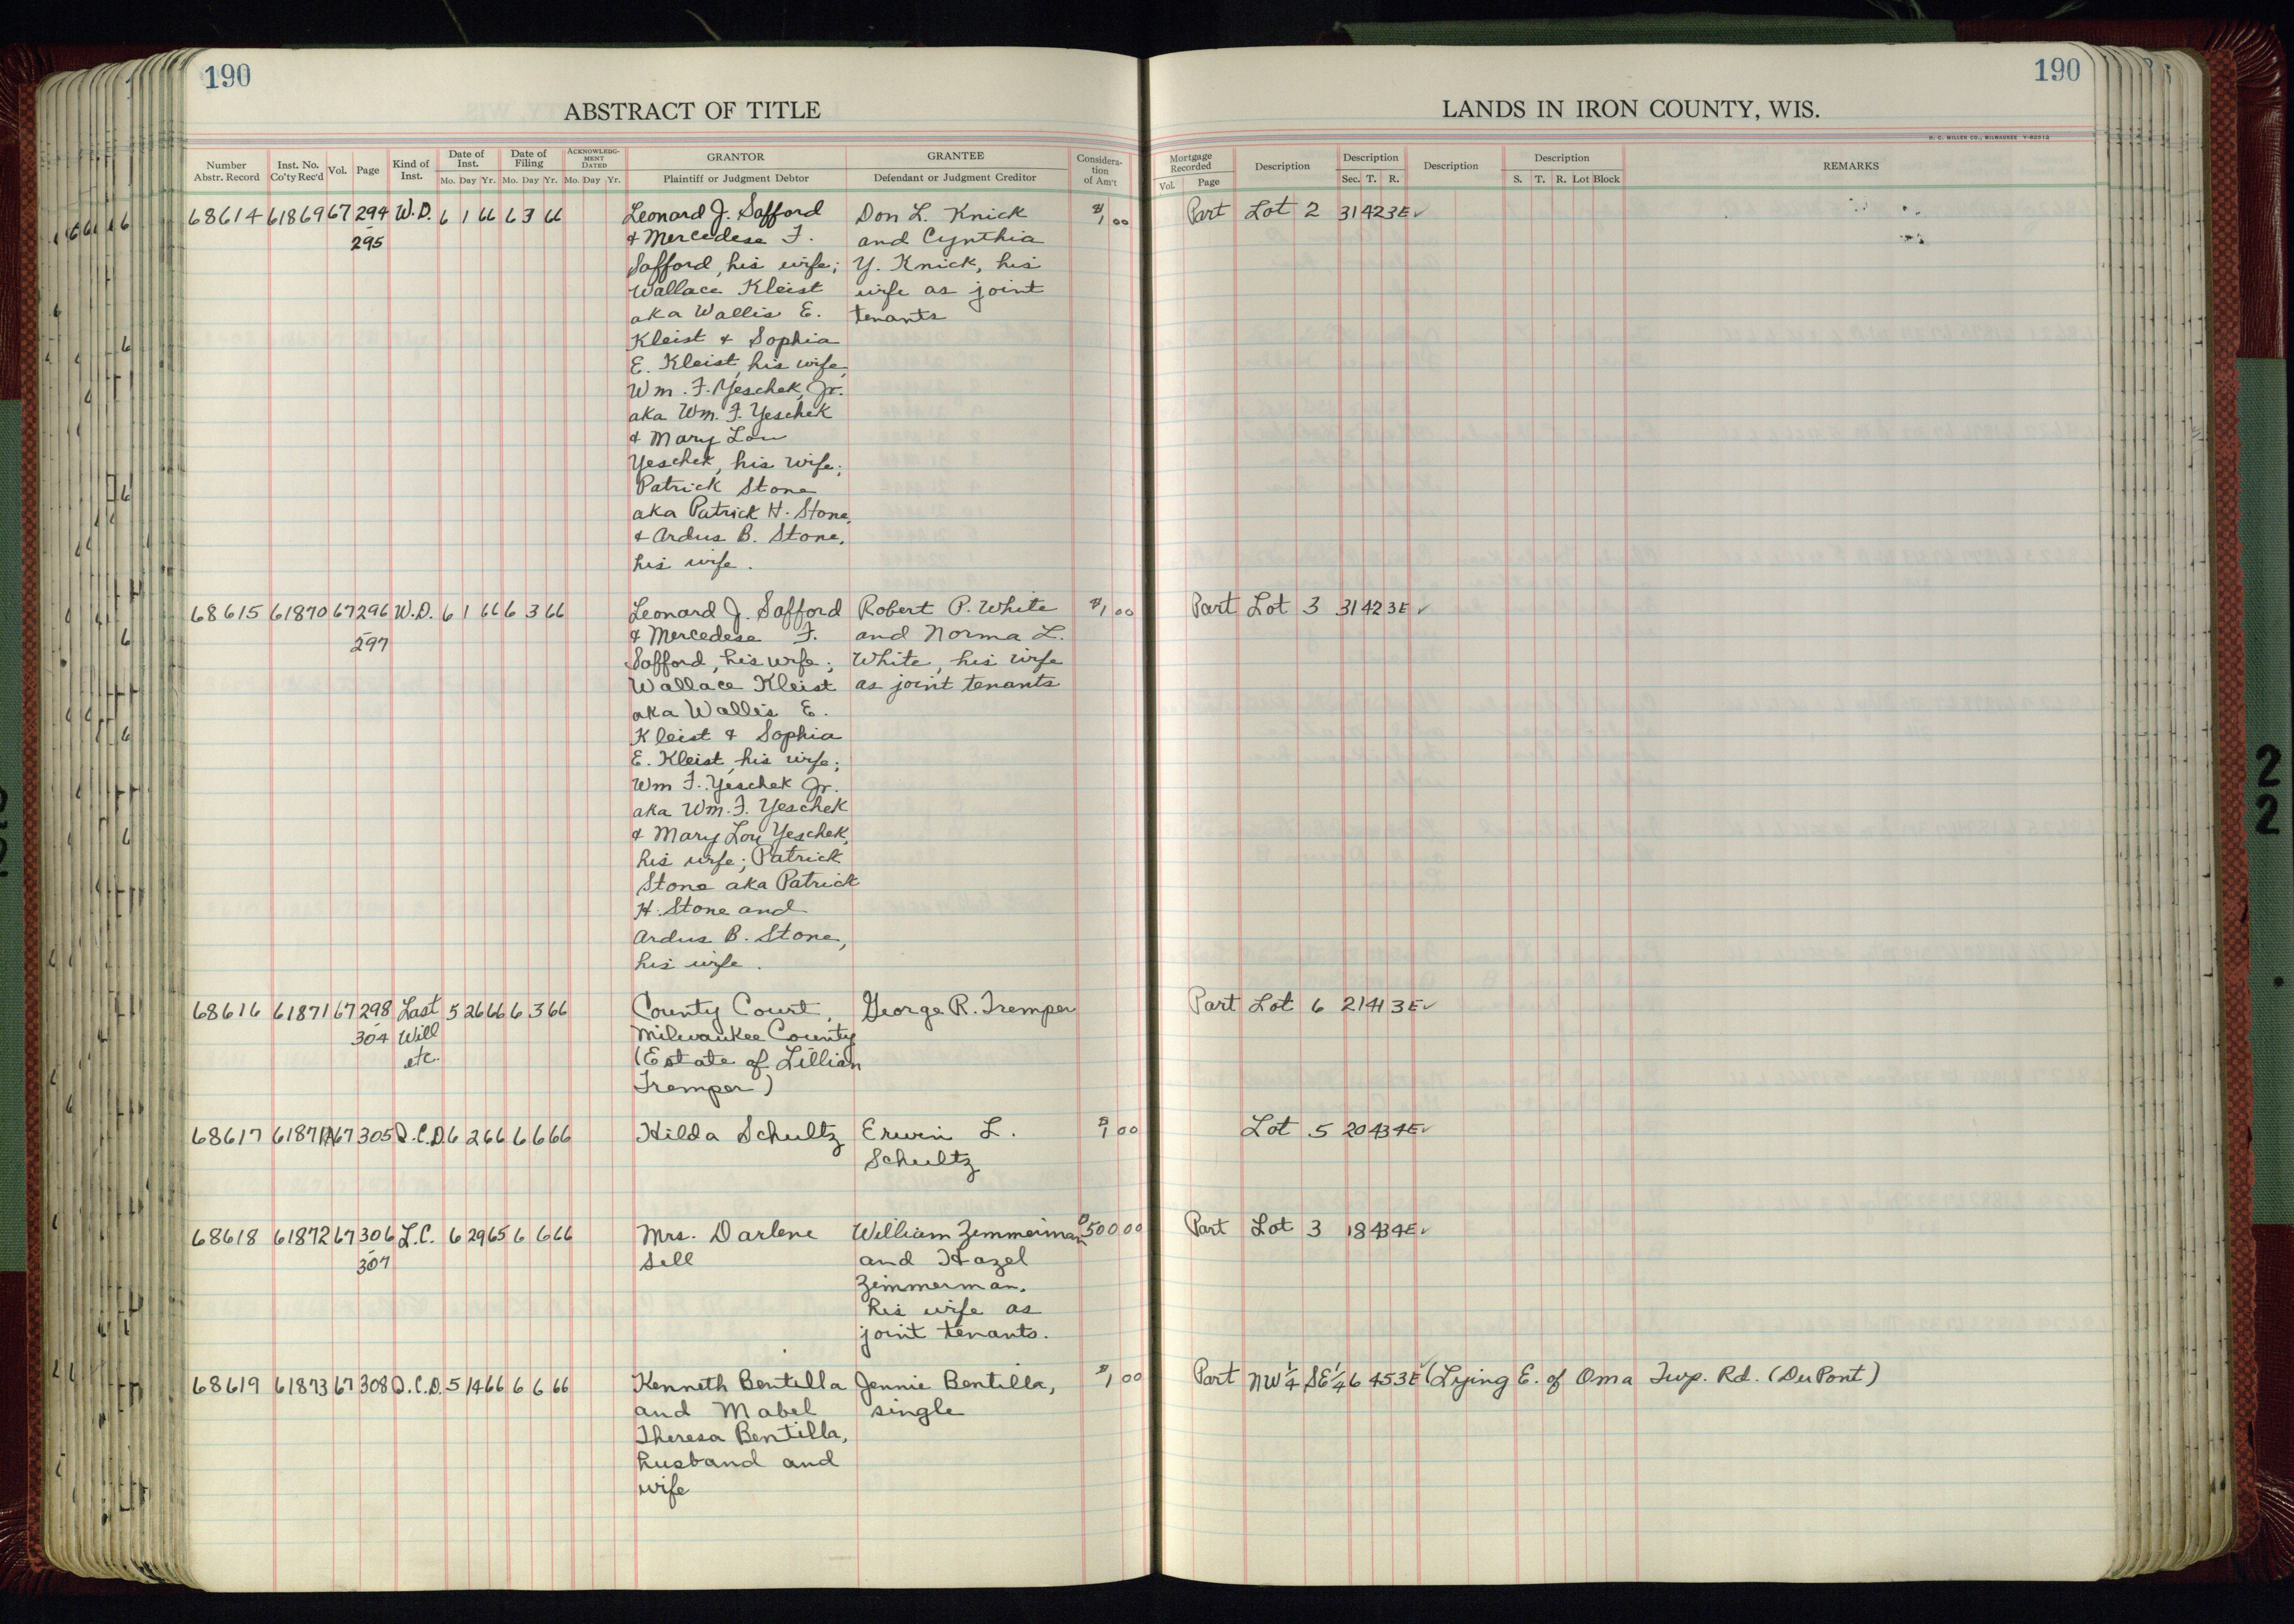 190
190
ABSTRACT OF TITLE
LANDS IN IRON COUNTY, WIS.
H. C. MILLER CO., MILWAUKEE Y-82512
Number Abstr. Record Inst. No. Co'ty Rec'd Vol. Page Kind of Inst. Date of Inst. Mo. Day Yr. Date of Filing Mo. Day Yr. ACKNOWLEDGMENT DATED Mo. Day Yr. GRANTOR Plaintiff or Judgment Debtor GRANTEE Defendant or Judgment Creditor Consideration of Am't
Mortgage Recorded Vol. Page Description Description Sec. T. R. Description Description S. T. R. Lot Block REMARKS
68614 61869 67 294 W.D. 6 1 66 6 3 66 Leonard J. Safford Don L. Knick $1 00 Part Lot 2 31 42 3E ✓
- 295 & Mercedese F. and Cynthia
Safford, his wife; Y. Knick, his
Wallace Kleist wife as joint
aka Wallis E. tenants
Kleist & Sophia
E. Kleist, his wife,
Wm. F. Yeschek, Jr.
aka Wm. F. Yeschek
& Mary Lou
Yeschek, his wife;
Patrick Stone
aka Patrick H. Stone,
& Ardus B. Stone,
his wife.
68615 61870 67 296 W.D. 6 1 66 6 3 66 Leonard J. Safford Robert P. White $1 00 Part Lot 3 31 42 3E ✓
- 297 & Mercedese F. and Norma L.
Safford, his wife; White, his wife
Wallace Kleist as joint tenants
aka Wallis E.
Kleist & Sophia
E. Kleist, his wife;
Wm F. Yeschek Jr.
aka Wm. F. Yeschek
& Mary Lou Yeschek,
his wife; Patrick
Stone aka Patrick
H. Stone and
Ardus B. Stone,
his wife.
68616 61871 67 298 Last 5 26 66 6 3 66 County Court, George R. Tremper Part Lot 6 21 41 3E ✓
- 304 Will Milwaukee County
etc. (Estate of Lillian
Tremper)
68617 61871A 67 305 Q.C.D. 6 2 66 6 6 66 Hilda Schultz Erwin L. $1 00 Lot 5 20 43 4E ✓
Schultz
68618 61872 67 306 L.C. 6 29 65 6 6 66 Mrs. Darlene William Zimmerman $500 00 Part Lot 3 18 43 4E ✓
- 307 Sell and Hazel
Zimmerman,
his wife as
joint tenants.
68619 61873 67 308 Q.C.D. 5 14 66 6 6 66 Kenneth Bentilla Jennie Bentilla, $1 00 Part NW¼ SE¼ 6 45 3E ✓ (Lying E. of Oma Twp. Rd. (DuPont)
and Mabel single
Theresa Bentilla,
husband and
wife
22